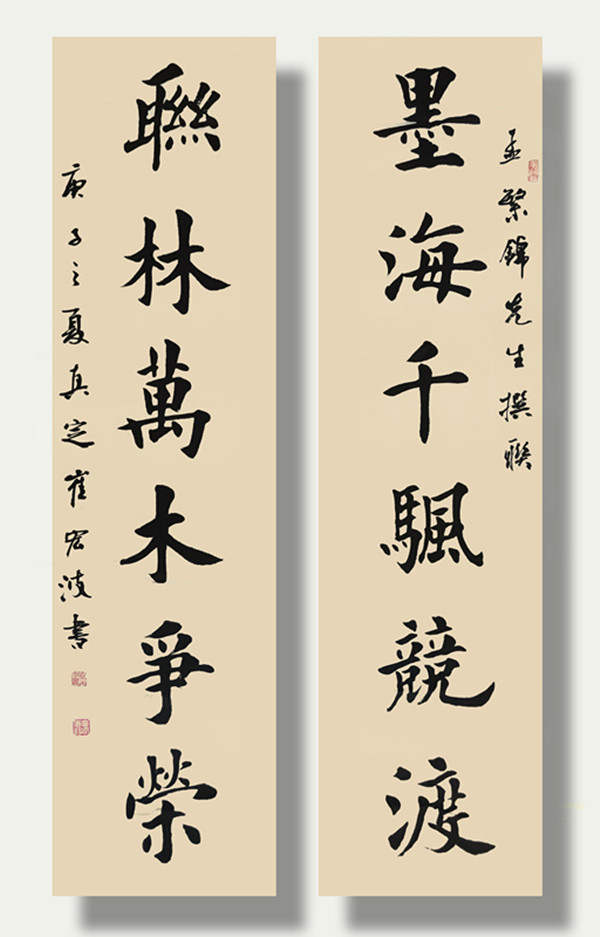 孟繁錦先生撰聯
墨海千颿競渡
聯林萬木爭榮
庚子之夏真定崔宏波書